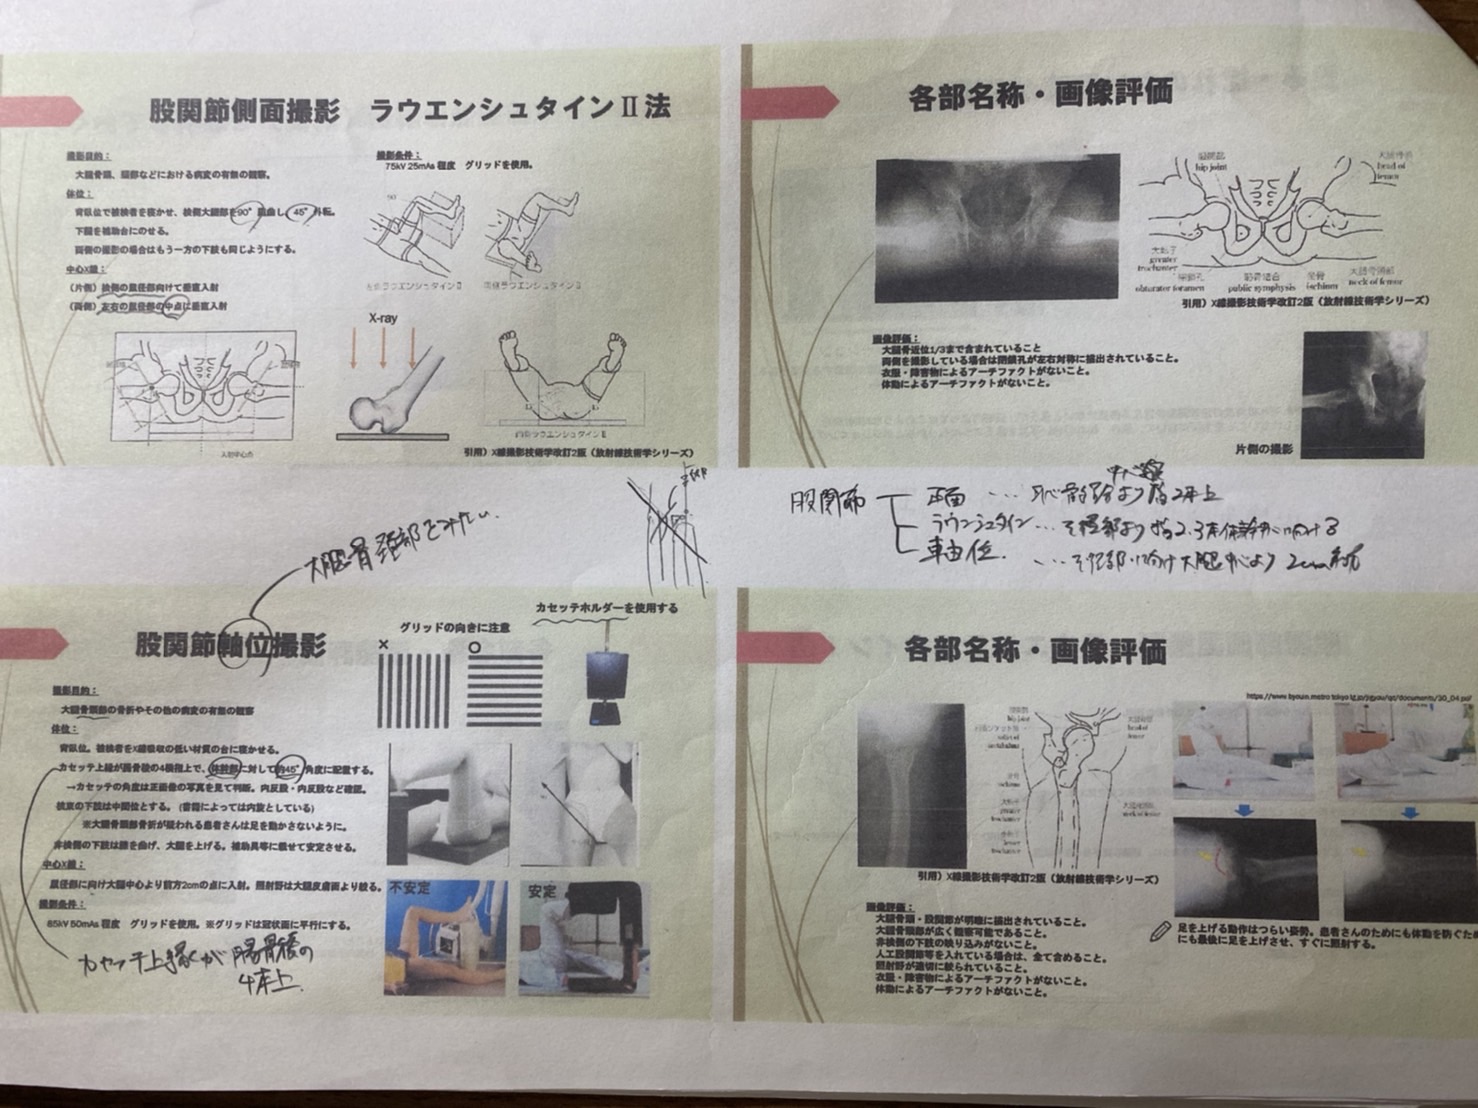 股関節側面撮影 ラウエンシュタインⅡ法
撮影目的:
大腿骨頭、頚部などにおける病変の有無の観察。
体位:
背臥位で被検者を寝かせ、検側大腿部を90°屈曲し、45°外転。
下腿を補助台にのせる。
両側の撮影の場合はもう一方の下肢も同じようにする。
中心X線:
(片側)検側の鼠径部向けて垂直入射
(両側)左右の鼠径部の中点に垂直入射
撮影条件:
75kV 25mAs 程度 グリッドを使用。
90
両側ラウエンシュタインⅡ
入射中心点
X-ray
両側ラウエンシュタインⅡ
引用)X線撮影技術学改訂2版(放射線技術学シリーズ)
各部名称・画像評価
hip joint
大腿骨頭
head of
femur
大転子
greater
trochanter
閉鎖孔
obturator foramen
恥骨結合
public symphysis
坐骨
ischium
大腿骨頚部
neck of femur
引用)X線撮影技術学改訂2版(放射線技術学シリーズ)
画像評価:
大腿骨近位1/3まで含まれていること
両側を撮影している場合は閉鎖孔が左右対称に描出されていること。
衣服・障害物によるアーチファクトがないこと。
体動によるアーチファクトがないこと。
片側の撮影
大腿骨頚部をみたい
股関節
正面 … より指2本上
ラウンシュタイン … そ径部より指2,3本体幹 に向ける
軸位. … そ径部に向け大腿中心より2cm
股関節軸位撮影
グリッドの向きに注意
×
○
カセッテホルダーを使用する
撮影目的:
大腿骨頚部の骨折やその他の病変の有無の観察
体位:
背臥位。被検者をX線吸収の低い材質の台に寝かせる。
カセッテ上縁が腸骨稜の4横指上で、体幹部に対して約45°角度に配置する。
→カセッテの角度は正面像の写真を見て判断。内反股・内反股など確認。
検東の下肢は中間位とする。(書籍によっては内旋としている)
※大腿骨頚部骨折が疑われる患者さんは足を動かさないように。
非検側の下肢は膝を曲げ、大腿を上げる。補助具等に載せて安定させる。
中心X線:
鼠径部に向け大腿中心より前方2cmの点に入射。照射野は大腿皮膚面より絞る。
撮影条件:
85kV 50mAs 程度 グリッドを使用。※グリッドは冠状面に平行にする。
不安定
安定
カセッテ上縁が腸骨稜の
4本上.
各部名称・画像評価
hip joint
head of
femur
greater
trochanter
neck of femur
引用)X線撮影技術学改訂2版(放射線技術学シリーズ)
画像評価:
大腿骨頭・股関節が明瞭に描出されていること。
大腿骨頚部が広く観察可能であること。
非検側の下肢の映り込みがないこと。
人工股関節等を入れている場合は、全て含めること。
照射野が適切に絞られていること。
衣服・障害物によるアーチファクトがないこと。
体動によるアーチファクトがないこと。
足を上げる動作はつらい姿勢。患者さんのためにも体動を防ぐため
にも最後に足を上げさせ、すぐに照射する。